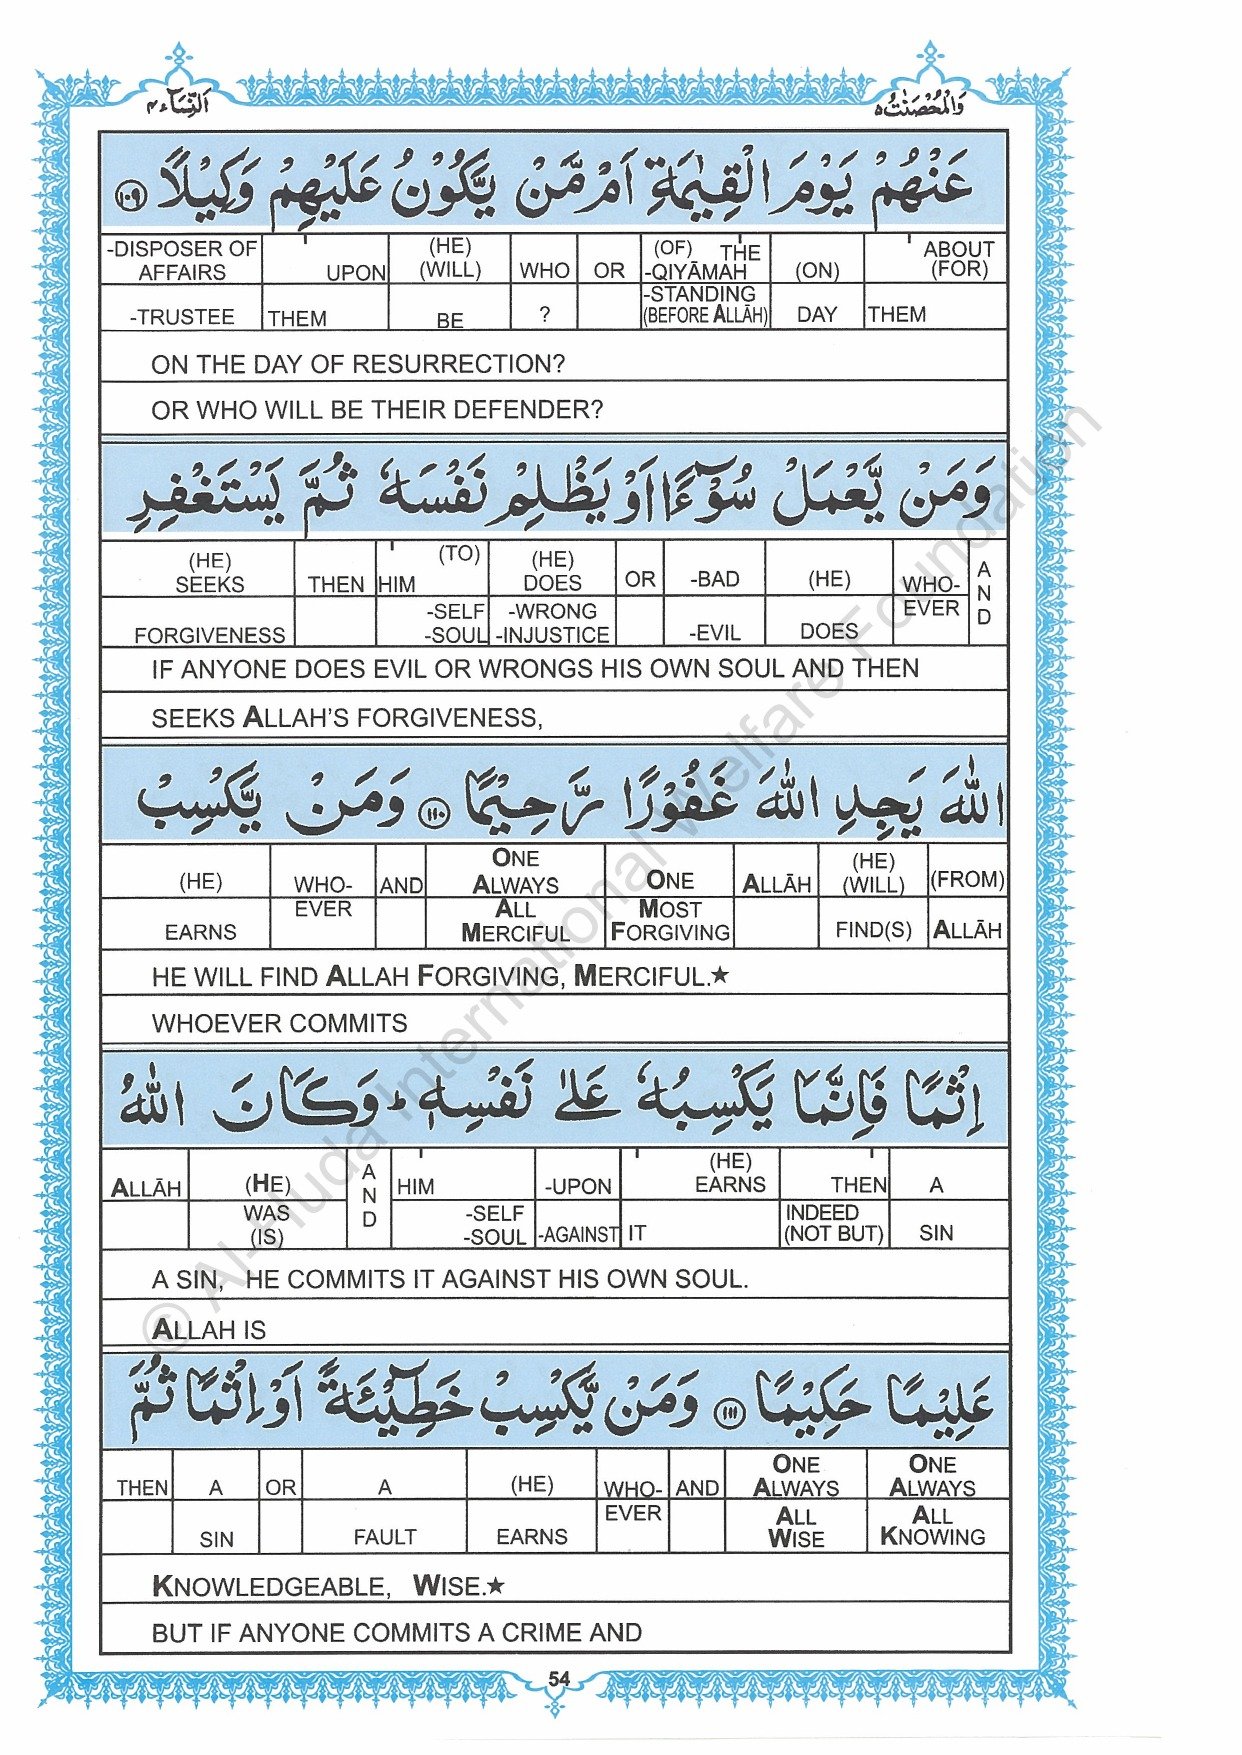 اَلنِّسَآء ٤
وَالْمُحْصَنٰتُ ٥
عَنْهُمْ يَوْمَ الْقِيٰمَةِ اَمْ مَّنْ يَّكُوْنُ عَلَيْهِمْ وَكِيْلًا ١٠٩
-DISPOSER OF AFFAIRS | UPON | (HE) (WILL) | WHO | OR | (OF) THE -QIYĀMAH | (ON) | ABOUT (FOR)
-TRUSTEE | THEM | BE | ? | -STANDING (BEFORE ALLĀH) | DAY | THEM
ON THE DAY OF RESURRECTION?
OR WHO WILL BE THEIR DEFENDER?
وَمَنْ يَّعْمَلْ سُوْٓءًا اَوْ يَظْلِمْ نَفْسَهٗ ثُمَّ يَسْتَغْفِرِ
(HE) SEEKS | THEN | (TO) HIM | (HE) DOES | OR | -BAD | (HE) | WHO- | AND
FORGIVENESS | -SELF -SOUL | -WRONG -INJUSTICE | -EVIL | DOES | EVER
IF ANYONE DOES EVIL OR WRONGS HIS OWN SOUL AND THEN
SEEKS ALLAH'S FORGIVENESS,
اللّٰهَ يَجِدِ اللّٰهَ غَفُوْرًا رَّحِيْمًا ١١٠ وَمَنْ يَّكْسِبْ
(HE) | WHO- | AND | ONE ALWAYS | ONE | ALLĀH | (HE) (WILL) | (FROM)
EARNS | EVER | ALL MERCIFUL | MOST FORGIVING | FIND(S) | ALLĀH
HE WILL FIND ALLAH FORGIVING, MERCIFUL.★
WHOEVER COMMITS
اِثْمًا فَاِنَّمَا يَكْسِبُهٗ عَلٰى نَفْسِهٖ ؕ وَكَانَ اللّٰهُ
ALLĀH | (HE) | AND | HIM | -UPON | (HE) EARNS | THEN | A
WAS (IS) | -SELF -SOUL | -AGAINST | IT | INDEED (NOT BUT) | SIN
A SIN, HE COMMITS IT AGAINST HIS OWN SOUL.
ALLAH IS
عَلِيْمًا حَكِيْمًا ١١١ وَمَنْ يَّكْسِبْ خَطِيْٓئَةً اَوْ اِثْمًا ثُمَّ
THEN | A | OR | A | (HE) | WHO- | AND | ONE ALWAYS | ONE ALWAYS
SIN | FAULT | EARNS | EVER | ALL WISE | ALL KNOWING
KNOWLEDGEABLE, WISE.★
BUT IF ANYONE COMMITS A CRIME AND
54
© Al-Huda International Welfare Foundation